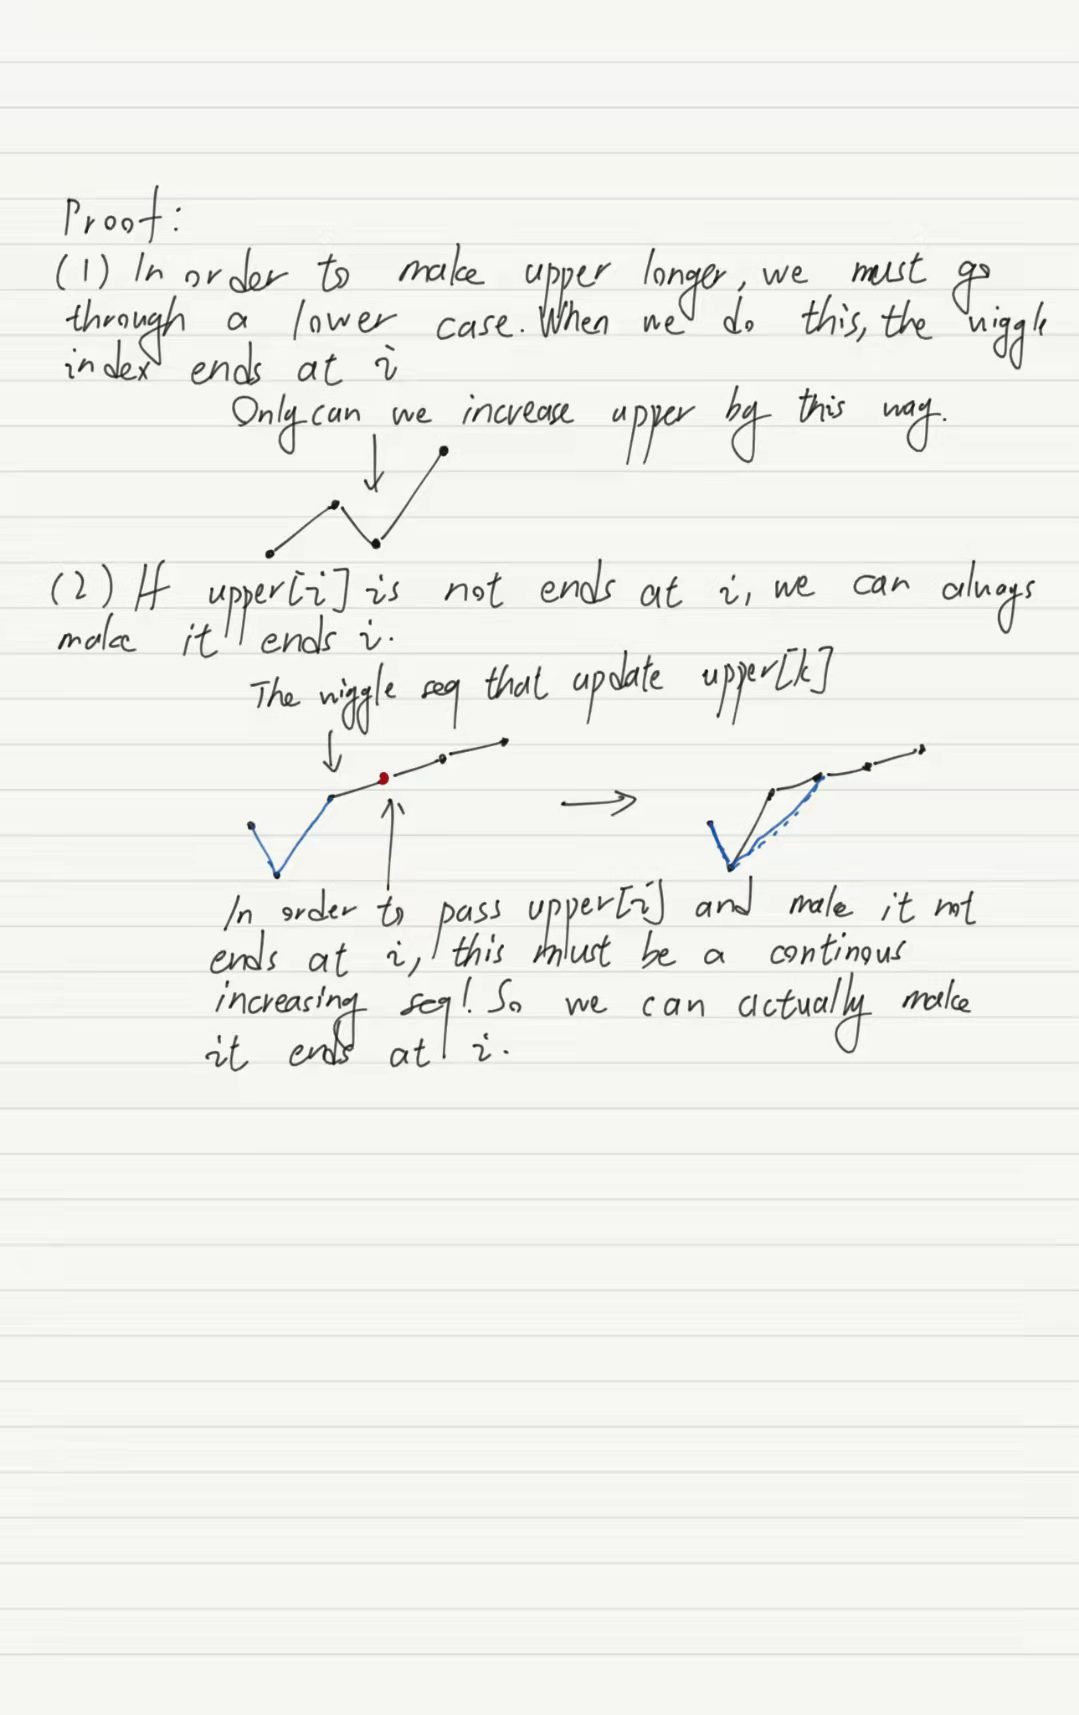 Proof:
(1) In order to make upper longer, we must go
through a lower case. When we do this, the wiggle
index ends at i
Only can we increase upper by this way.
(2) If upper[i] is not ends at i, we can always
make it ends i.
The wiggle seq that update upper[k]
In order to pass upper[i] and make it not
ends at i, this must be a continous
increasing seq! So we can actually make
it ends at i.